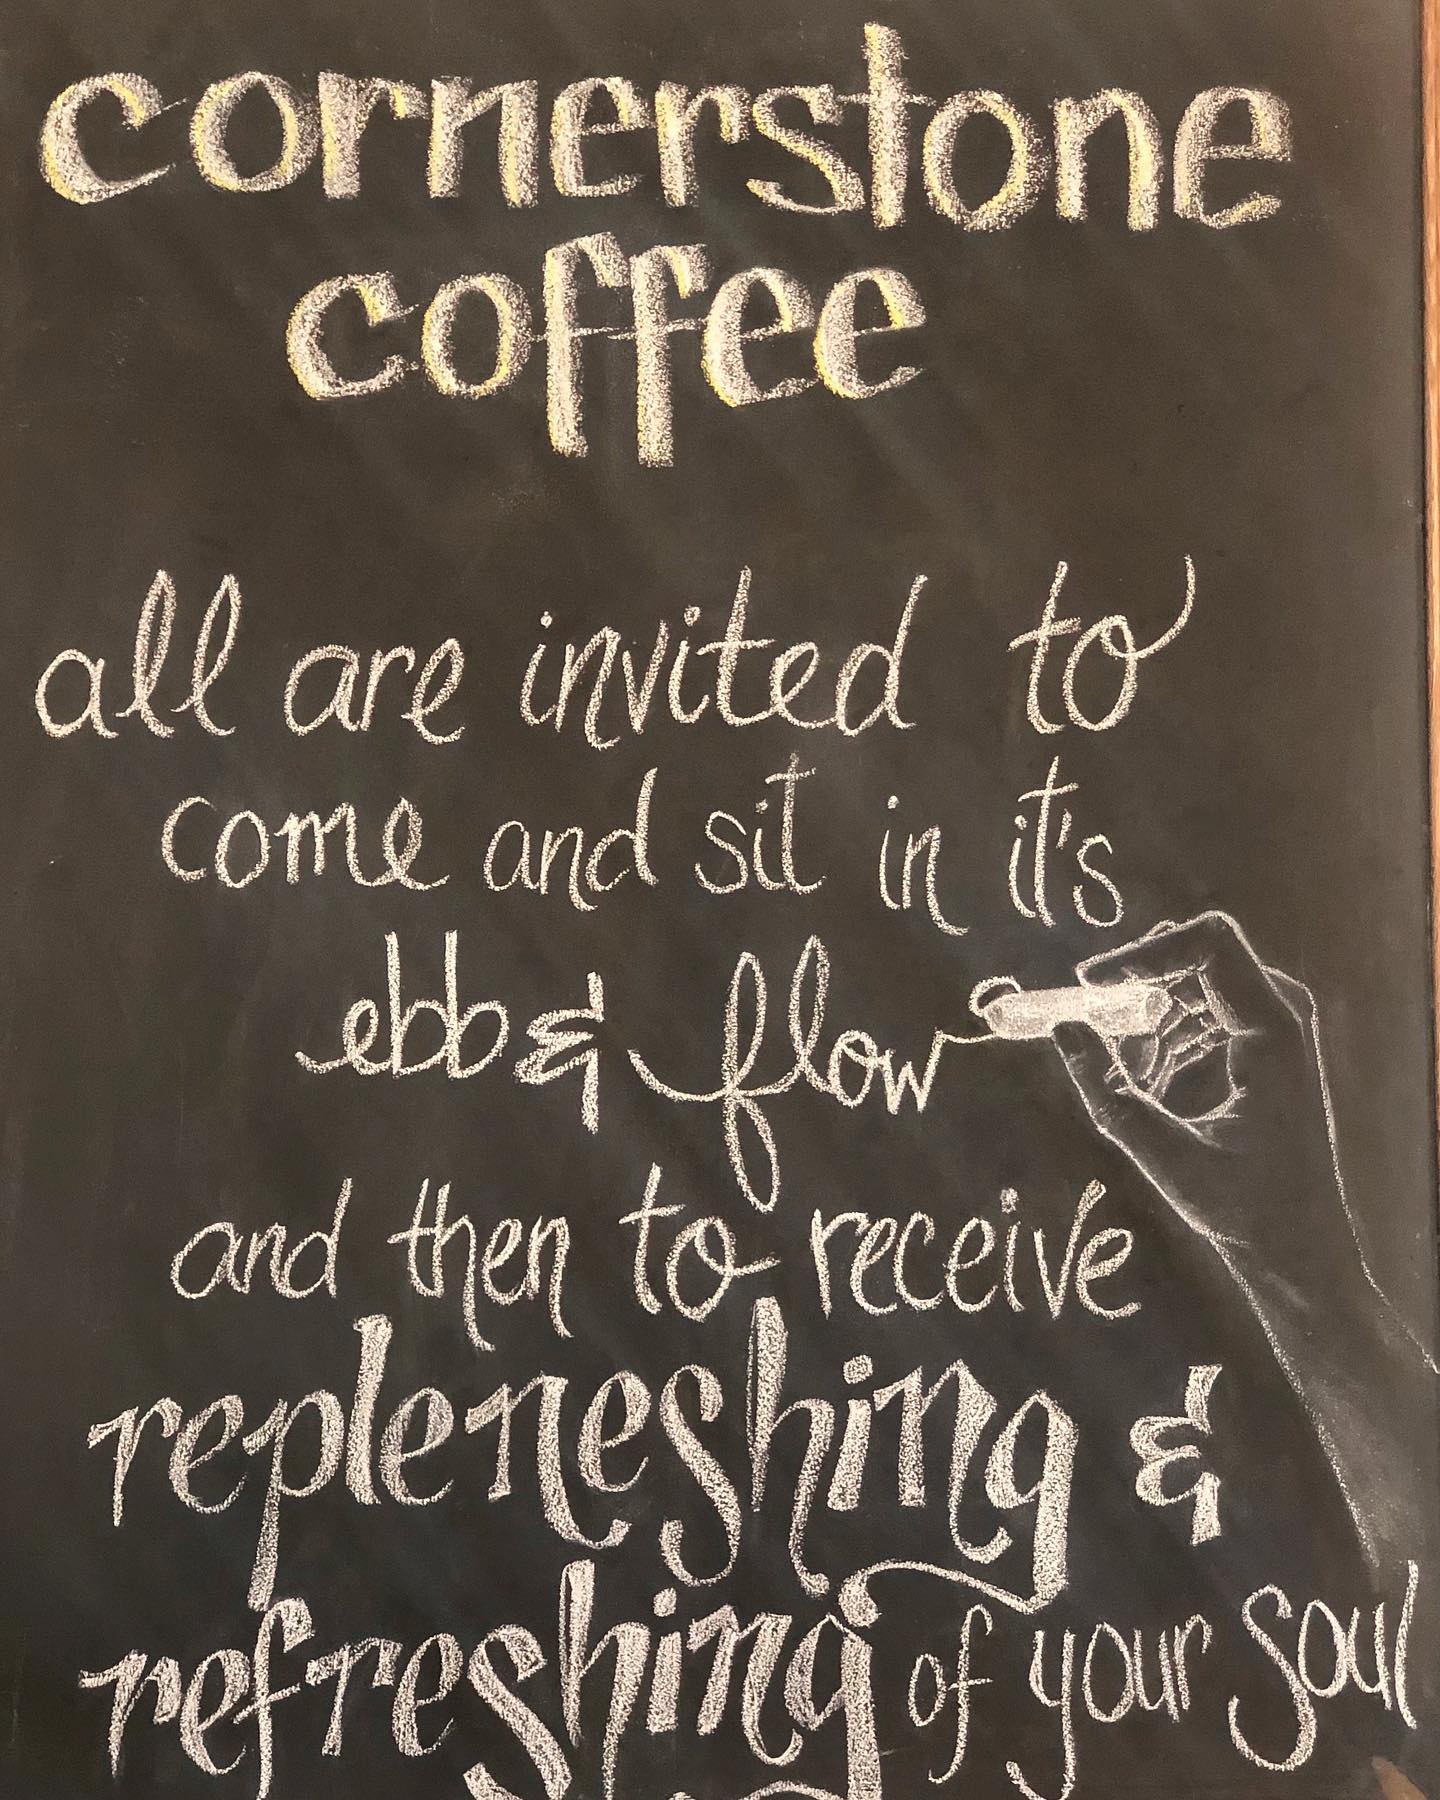 cornerstone
coffee
all are invited to
come and sit in it's
ebb & flow
and then to receive
repleneshing &
refreshing of your soul